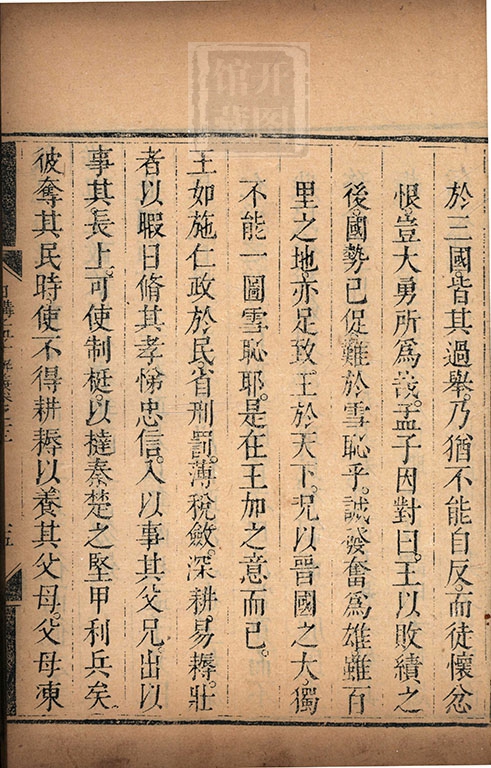 於三國皆其過舉乃猶不能自反而徒懷忿
恨豈大勇所爲哉孟子因對曰王以敗績之
後國勢已促難於雪恥乎誠發奮爲雄雖百
里之地亦足致王於天下况以晉國之大獨
不能一圖雪恥耶是在王加之意而已
王如施仁政於民省刑罰薄稅斂深耕易耨壯
者以暇日脩其孝悌忠信入以事其父兄出以
事其長上可使制梃以撻秦楚之堅甲利兵矣
彼奪其民時使不得耕耨以養其父母父母凍
開图
馆藏